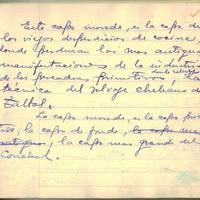 Este capa morada, es la capa de
los viejos desperdicios de cocina,
donde perduran las mas antiguas
manifestaciones de la industria
de los pescadores primitivos
tecnica del salvaje chelense de
Taltal.
La capa morada, es la capa
la capa de fondo, la capa mas
antigua, la capa mas grande del
Conchal.